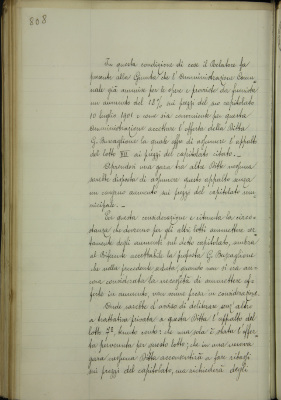 808
In questa condizione di cose il Relatore fa
presente alla Giunta che l'Amministrazione Comu-
nale già ammise per le opere e provviste da fornirsi
un aumento del 12% sui prezzi del suo capitolato
10 luglio 1901 e come sia conveniente per questa
Amministrazione accettare l'offerta della Ditta
G. Buzzaglione la quale offre di assumere l'appalto
del lotto VII ai prezzi del capitolato citato.
una gara tra altre Ditte nessuna
sarebbe disposta di assumere questo appalto senza
un congruo aumento sui prezzi del capitolato mu-
nicipale.
Per questa considerazione e ritenuta la circo-
stanza che dovranno per gli altri lotti ammettere
degli aumenti sul detto capitolato, sembra
al Riferente accettabile la proposta G. Buzzaglione
che nella precedente seduta, quando non si era an-
cora considerata la necessità di ammettere of-
ferte in aumento, non venne presa in considerazione.
Onde sarebbe d'avviso di deliberare senz'altro
a trattativa privata a questa Ditta l'appalto del
lotto 7º, tenuto conto: che una sola è stata l'offer-
ta pervenuta per questo lotto; che in una nuova
gara nessuna Ditta acconsentirà a fare ribassi
sui prezzi del capitolato, ma richiederà degli